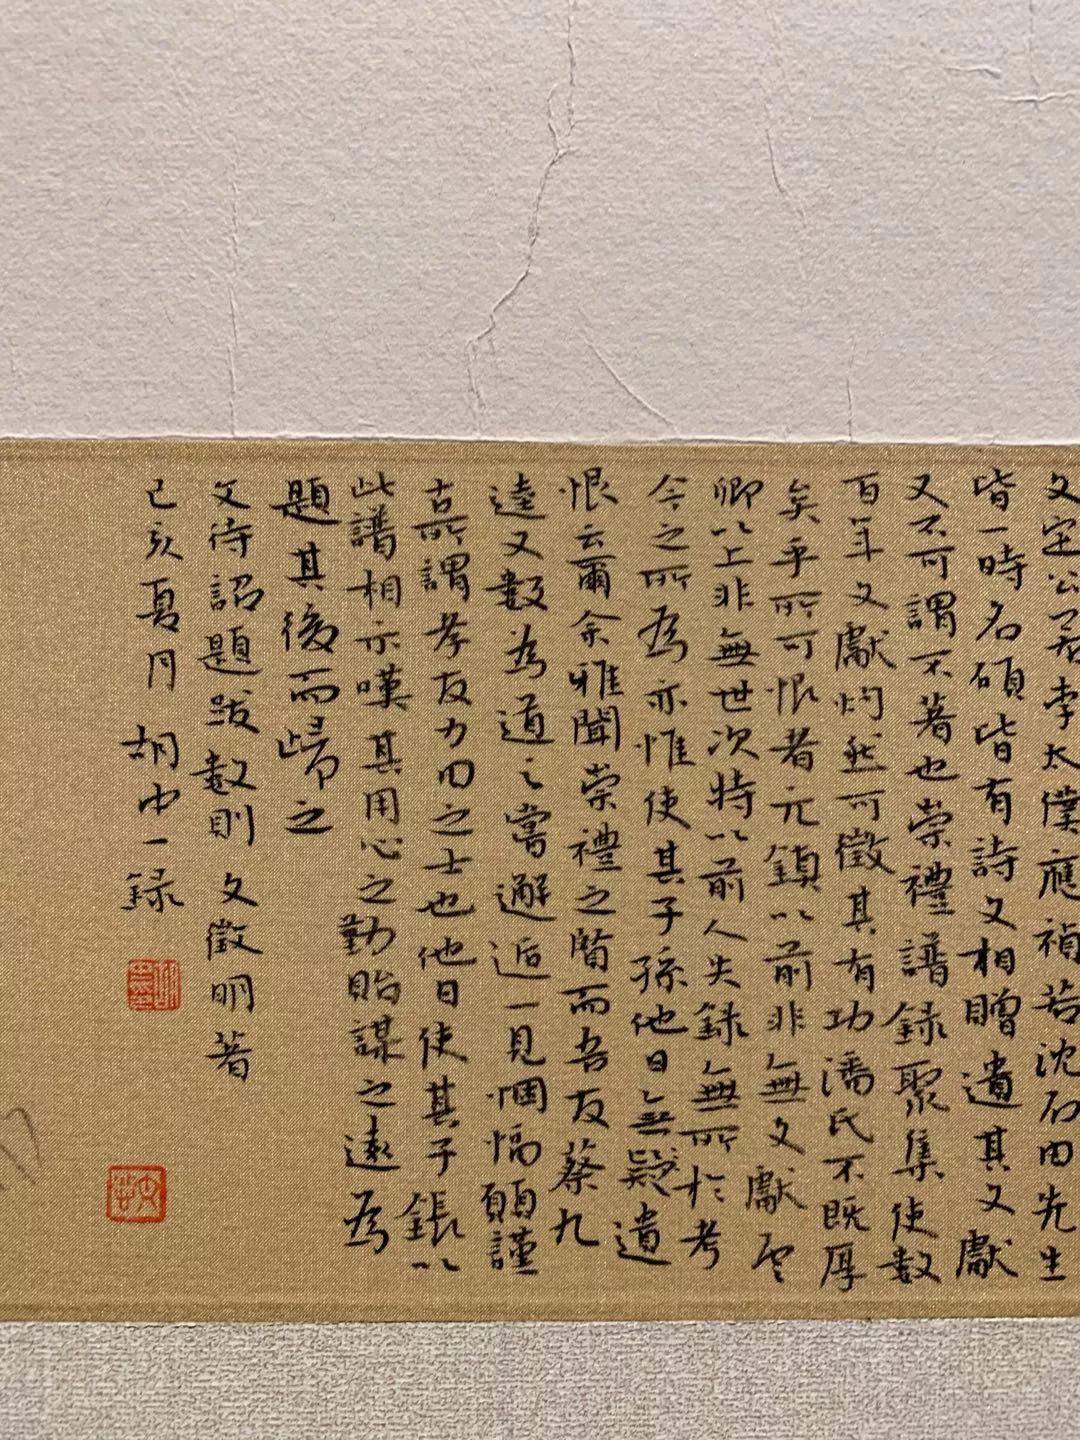 文定公若李太僕應禎若沈石田先生
皆一時名碩皆有詩文相贈遺其文獻
又不可謂不著也崇禮譜錄聚集使數
百年文獻灼然可徵其有功潘氏不既厚
矣乎所可恨者元鎮以前非無文獻而
卿以上非無世次特以前人失錄無所於考
今之所為亦惟使其子孫他日無疑遺
恨云爾余雅聞崇禮之賢而吾友蔡九
逵又數為道之嘗邂逅一見悃愊願謹
古所謂孝友力田之士也他日使其子鋹以
此譜相示嘆其用心之勤貽謀之遠為
題其後而歸之
文待詔題跋數則 文徵明著
己亥夏月 胡中一錄